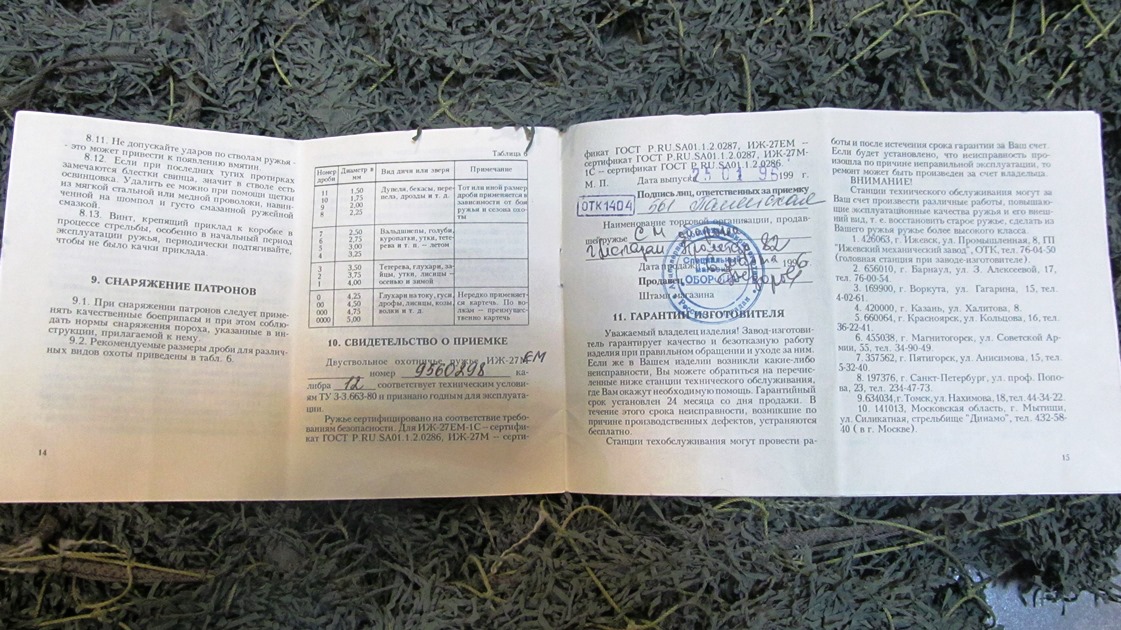 8.11. Не допускайте ударов по стволам ружья-
- это может привести к появлению вмятин.
8.12. Если при последних тугих протирках
замечаются блестки свинца, значит в стволе есть
освинцовка. Удалить ее можно при помощи щетки
из мягкой стальной или медной проволоки, навин-
ченной на шомпол и густо смазанной ружейной
смазкой.
8.13. Винт, крепящий приклад к коробке в
процессе стрельбы, особенно в начальный период
эксплуатации ружья, периодически подтягивайте,
чтобы не было качки приклада.
9. СНАРЯЖЕНИЕ ПАТРОНОВ
9.1. При снаряжении патронов следует приме-
нять качественные боеприпасы и при этом соблю-
дать нормы снаряжения пороха, указанные в ин-
струкции, прилагаемой к нему.
9.2. Рекомендуемые размеры дроби для различ-
ных видов охоты приведены в табл. 6.
14
Таблица 6
Номер дроби Диаметр в мм Вид дичи или зверя Примечание
11 1,50 Дупеля, бекасы, пере- Тот или иной размер
10 1,75 пела, дрозды и т. д. дроби применяется в
9 2,00 зависимости от боя
8 2,25 ружья и сезона охо-
ты
7 2,50 Вальдшнепы, голуби,
6 2,75 куропатки, утки, тете-
5 3,00 рева и т. п. – летом
4 3,25
3 3,50 Тетерева, глухари, за-
2 3,75 йцы, утки, лисицы –
1 4,00 осенью и зимой
0 4,25 Глухари на току, гуси, Нередко применяет-
00 4,50 дрофы, лисицы, козы, ся картечь. По во-
000 4,75 волки и т. д. лкам – преимущест-
0000 5,00 венно картечь
10. СВИДЕТЕЛЬСТВО О ПРИЕМКЕ
Двуствольное охотничье ружье ИЖ-27 ЕМ
номер 9560298 ка-
либра 12 соответствует техническим услови-
ям ТУ 3-3.663-80 и признано годным для эксплуата-
ции.
Ружье сертифицировано на соответствие требо-
ваниям безопасности. Для ИЖ-27ЕМ-1С – сертифи-
кат ГОСТ Р.RU.SA01.1.2.0286, ИЖ-27М – серти-
фикат ГОСТ Р.RU.SA01.1.2.0287, ИЖ-27ЕМ –
сертификат ГОСТ Р.RU.SA01.1.2.0287, ИЖ-27М-
1С – сертификат ГОСТ Р.RU.SA01.1.2.0286.
М. П. Дата выпуска 199 г.
Подпись лиц, ответственных за приемку
ОТК1404 561
Наименование торговой организации, продав-
шей ружье С М
82
Дата продажи 1996
Продавец
Штамп магазина
11. ГАРАНТИИ ИЗГОТОВИТЕЛЯ
Уважаемый владелец изделия! Завод-изготови-
тель гарантирует качество и безотказную работу
изделия при правильном обращении и уходе за ним.
Если же в Вашем изделии возникли какие-либо
неисправности, Вы можете обратиться на перечис-
ленные ниже станции технического обслуживания,
где Вам окажут необходимую помощь. Гарантийный
срок установлен 24 месяца со дня продажи. В
течение этого срока неисправности, возникшие по
причине производственных дефектов, устраняются
бесплатно.
Станции техобслуживания могут провести ра-
боты и после истечения срока гарантии за Ваш счет.
Если будет установлено, что неисправность про-
изошла по причине неправильной эксплуатации, то
ремонт может быть произведен за счет владельца.
ВНИМАНИЕ!
Станции технического обслуживания могут за
Ваш счет произвести различные работы, повышаю-
щие эксплуатационные качества ружья и его внеш-
ний вид, т. е. восстановить старое ружье, сделать из
Вашего ружья ружье более высокого класса.
1. 426063, г. Ижевск, ул. Промышленная, 8, ГП
"Ижевский механический завод", ОТК, тел. 76-04-50
(головная станция при заводе-изготовителе).
2. 656010, г. Барнаул, ул. З. Алексеевой, 17,
тел. 76-00-54.
3. 169900, г. Воркута, ул. Гагарина, 15, тел.
4-02-61.
4. 420000, г. Казань, ул. Халитова, 8.
5. 660064, г. Красноярск, ул. Кольцова, 16, тел.
36-22-41.
6. 455038, г. Магнитогорск, ул. Советской Ар-
мии, 55, тел. 34-90-49.
7. 357562, г. Пятигорск, ул. Анисимова, 15, тел.
5-32-40.
8. 197376, г. Санкт-Петербург, ул. проф. Попо-
ва, 23, тел. 234-47-73.
9. 634034, г. Томск, ул. Нахимова, 18, тел. 44-34-22.
10. 141013, Московская область, г. Мытищи,
ул. Силикатная, стрельбище "Динамо", тел. 432-58-
40 ( в г. Москве).
15